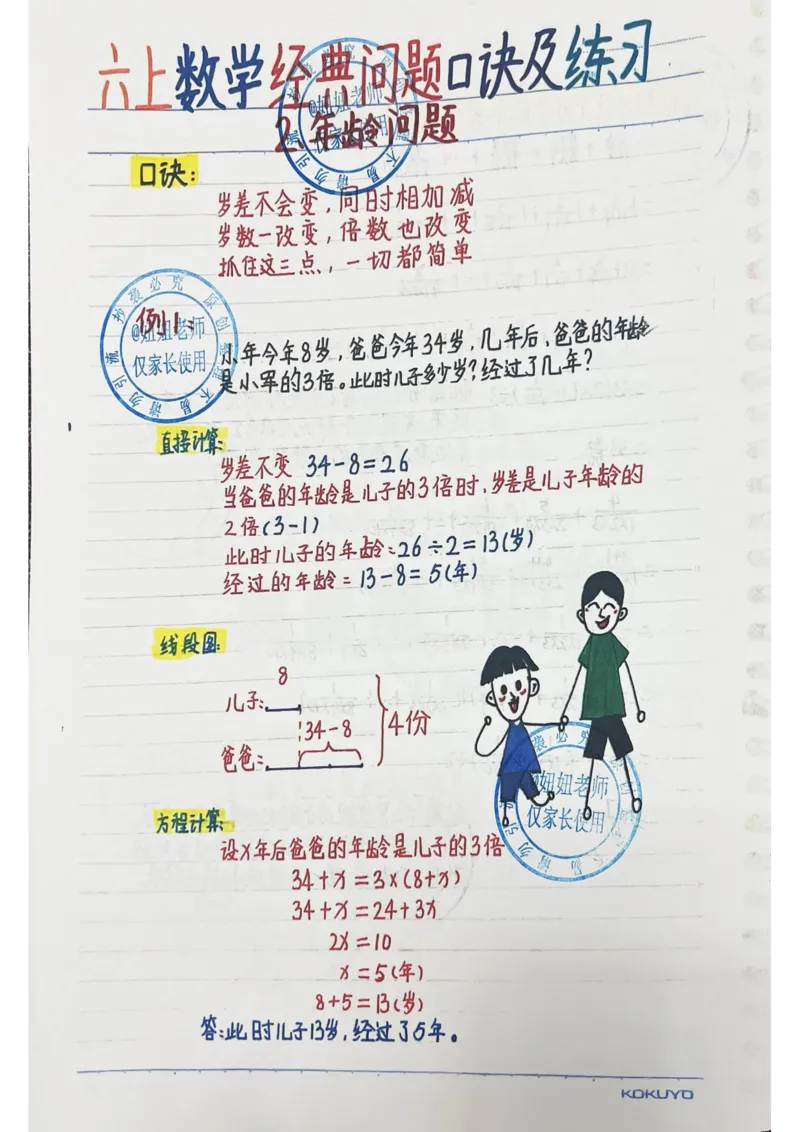 六上数学经典问题口诀及练习
2、年龄问题
口诀:
岁差不会变,同时相加减
岁数一改变,倍数也改变
抓住这三点,一切都简单
例1:
小年今年8岁,爸爸今年34岁,几年后,爸爸的年龄
是小军的3倍。此时儿子多少岁?经过了几年?
直接计算:
岁差不变 34-8=26
当爸爸的年龄是儿子的3倍时,岁差是儿子年龄的
2倍(3-1)
此时儿子的年龄=26÷2=13(岁)
经过的年龄=13-8=5(年)
线段图:
8
儿子:
34-8
4份
爸爸:
方程计算:
设x年后爸爸的年龄是儿子的3倍
34+x=3×(8+x)
34+x=24+3x
2x=10
x=5(年)
8+5=13(岁)
答:此时儿子13岁,经过了5年。
抄袭必究 原创
@妞妞老师
仅家长使用
请勿引流 不易
KOKUYO